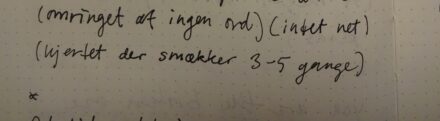 (omringet af ingen ord) (intet net)
(hjertet der smækker 3-5 gange)
*